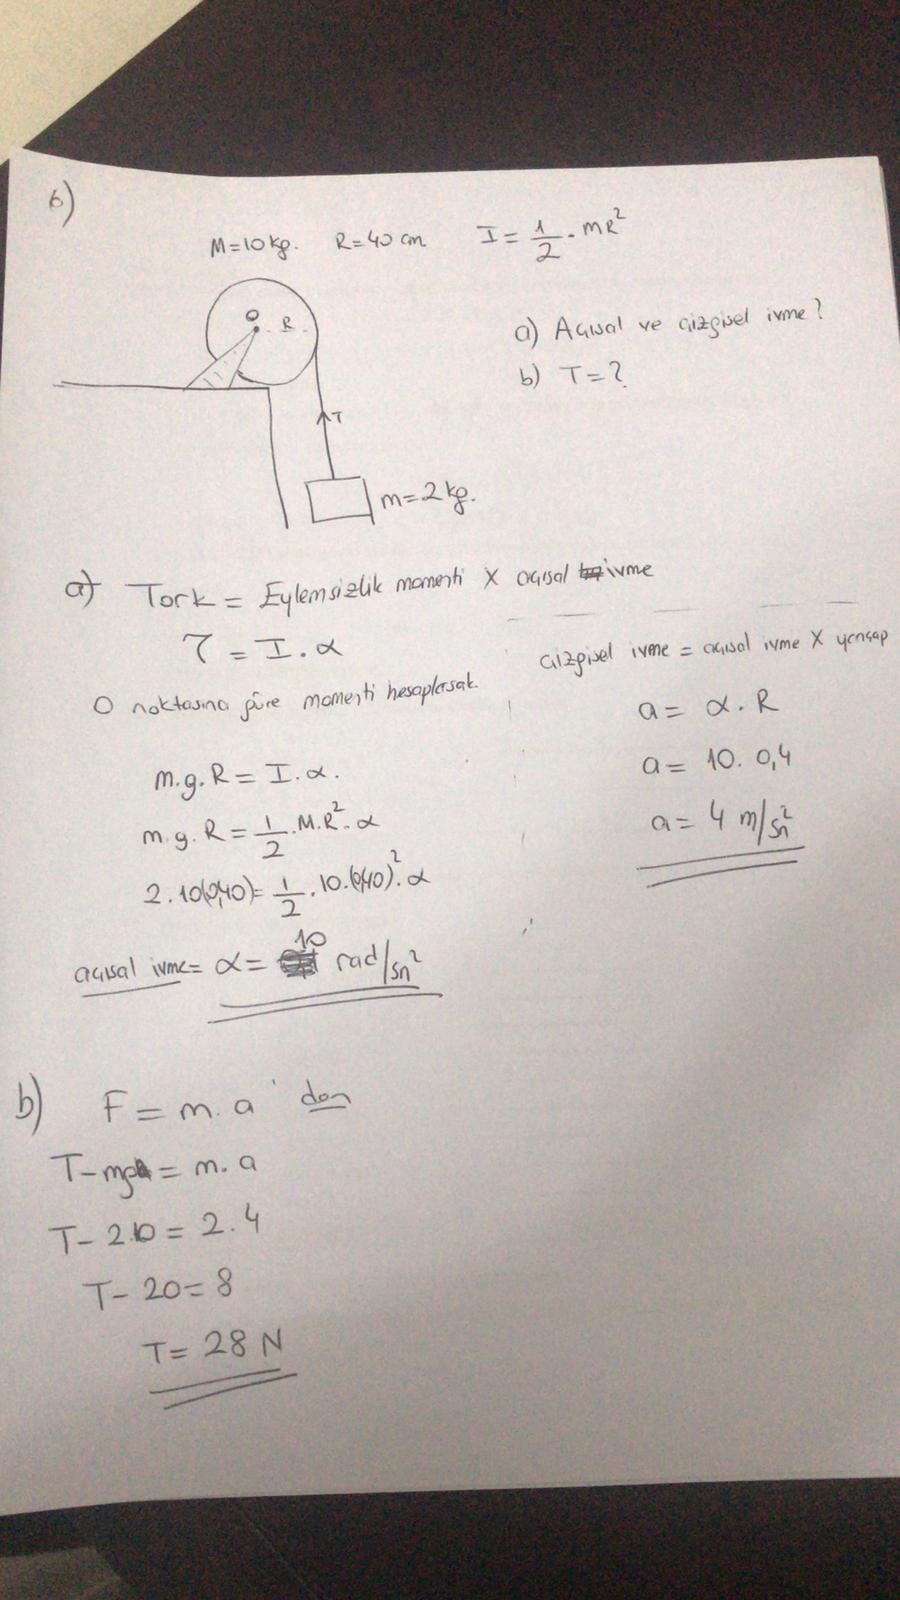 6)
M=10kg. R=40 cm I = 1/2 . MR²
O R
a) Açısal ve çizgisel ivme?
b) T=?
T
m=2kg.
a) Tork = Eylemsizlik momenti X açısal ivme
τ = I.α
O noktasına göre momenti hesaplarsak.
m.g.R = I.α.
m.g.R = 1/2 .M.R².α
2.10(0,40)= 1/2 .10.(0,40)².α
açısal ivme= α= 10 rad/sn²
çizgisel ivme = açısal ivme X yarıçap
a= α.R
a= 10. 0,4
a= 4 m/sn²
b) F = m.a 'dan
T-mg = m.a
T- 2.10 = 2.4
T- 20=8
T= 28 N